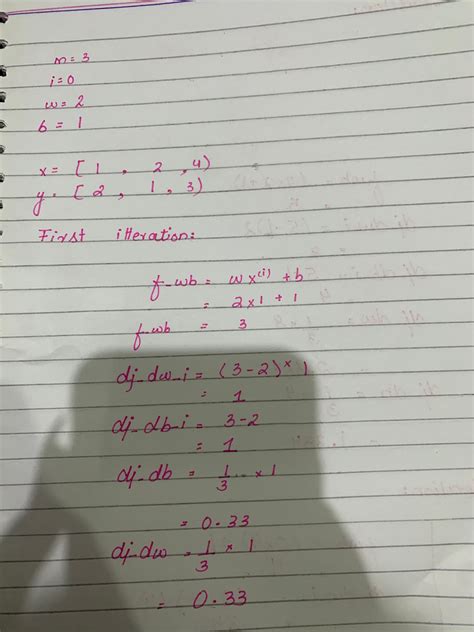 m = 3
i = 0
w = 2
b = 1
x = [1 , 2 , 4)
y = [2 , 1 , 3)
First itteration:
f_wb = wx⁽ⁱ⁾ + b
= 2x1 + 1
f_wb = 3
dj_dw_i = (3-2)ˣ 1
= 1
dj_db_i = 3-2
= 1
dj_db = 1/3 x 1
= 0.33
dj_dw = 1/3 x 1
= 0.33